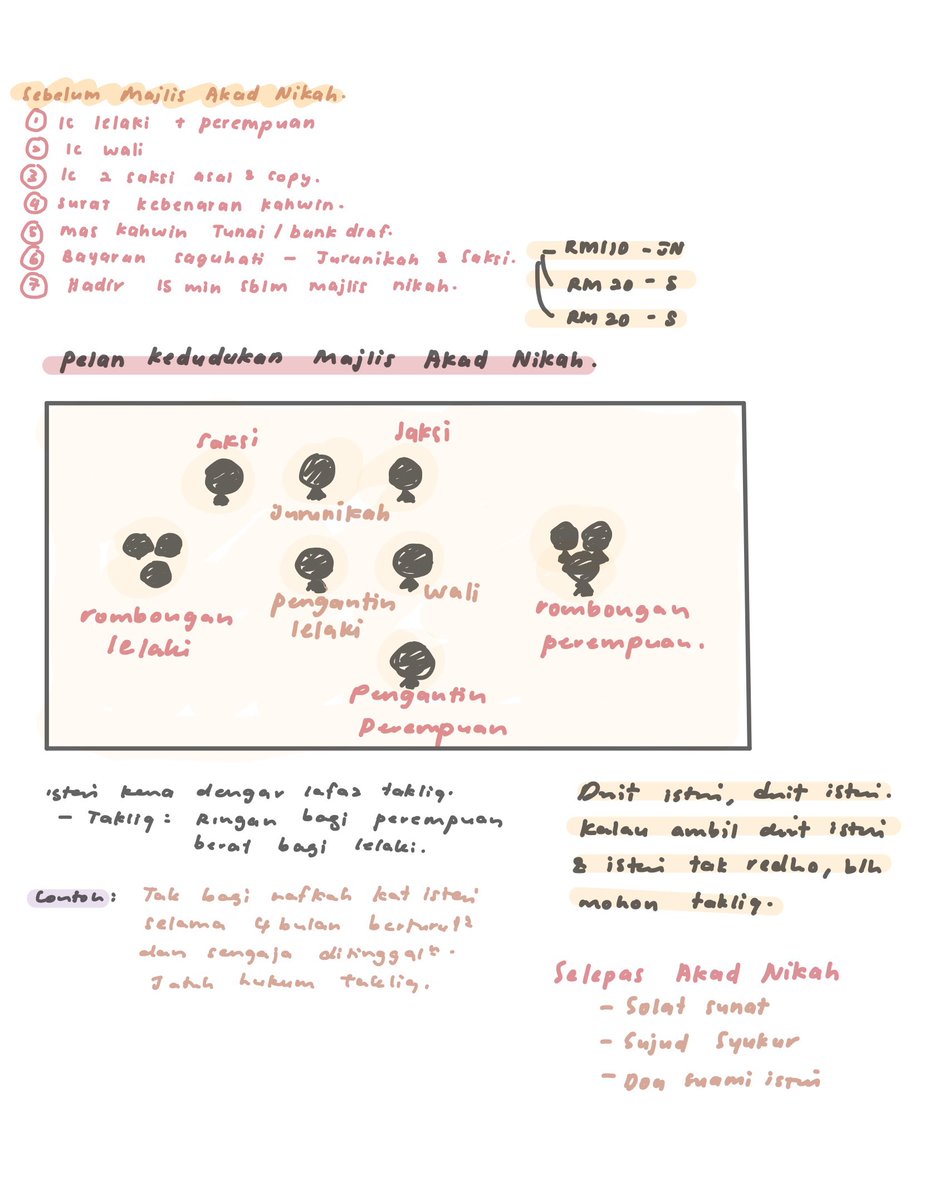 Sebelum Majlis Akad Nikah.
① Ic lelaki + perempuan
② Ic wali
③ Ic 2 saksi asal & copy.
④ Surat kebenaran kahwin.
⑤ mas kahwin Tunai / bank draf.
⑥ Bayaran saguhati – Jurunikah & Saksi.
⑦ Hadir 15 min sblm majlis nikah.
– RM110 – JN
RM 20 – S
RM 20 – S
Pelan kedudukan Majlis Akad Nikah.
Saksi
Saksi
Jurunikah
pengantin
lelaki
wali
rombongan
lelaki
rombongan
perempuan.
Pengantin
Perempuan
isteri kena dengar lafaz takliq.
– Takliq : Ringan bagi perempuan
berat bagi lelaki.
Contoh : Tak bagi nafkah kat isteri
selama 4 bulan berturut²
dan sengaja ditinggal².
Jatuh hukum Takliq.
Duit isteri, duit isteri.
kalau ambil duit isteri
& isteri tak redho, blh
mohon takliq.
Selepas Akad Nikah
– Solat sunat
– Sujud Syukur
– Doa suami isteri